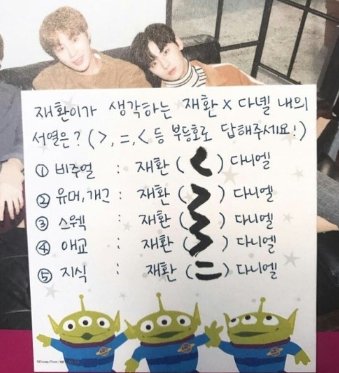 재환이가 생각하는 재환 X 다녤 내의
서열은? (>, =, < 등 부등호로 답해주세요!)
① 비주얼 : 재환 ( < ) 다니엘
② 유머, 개그 : 재환 ( > ) 다니엘
③ 스웩 : 재환 ( > ) 다니엘
④ 애교 : 재환 ( > ) 다니엘
⑤ 지식 : 재환 ( = ) 다니엘